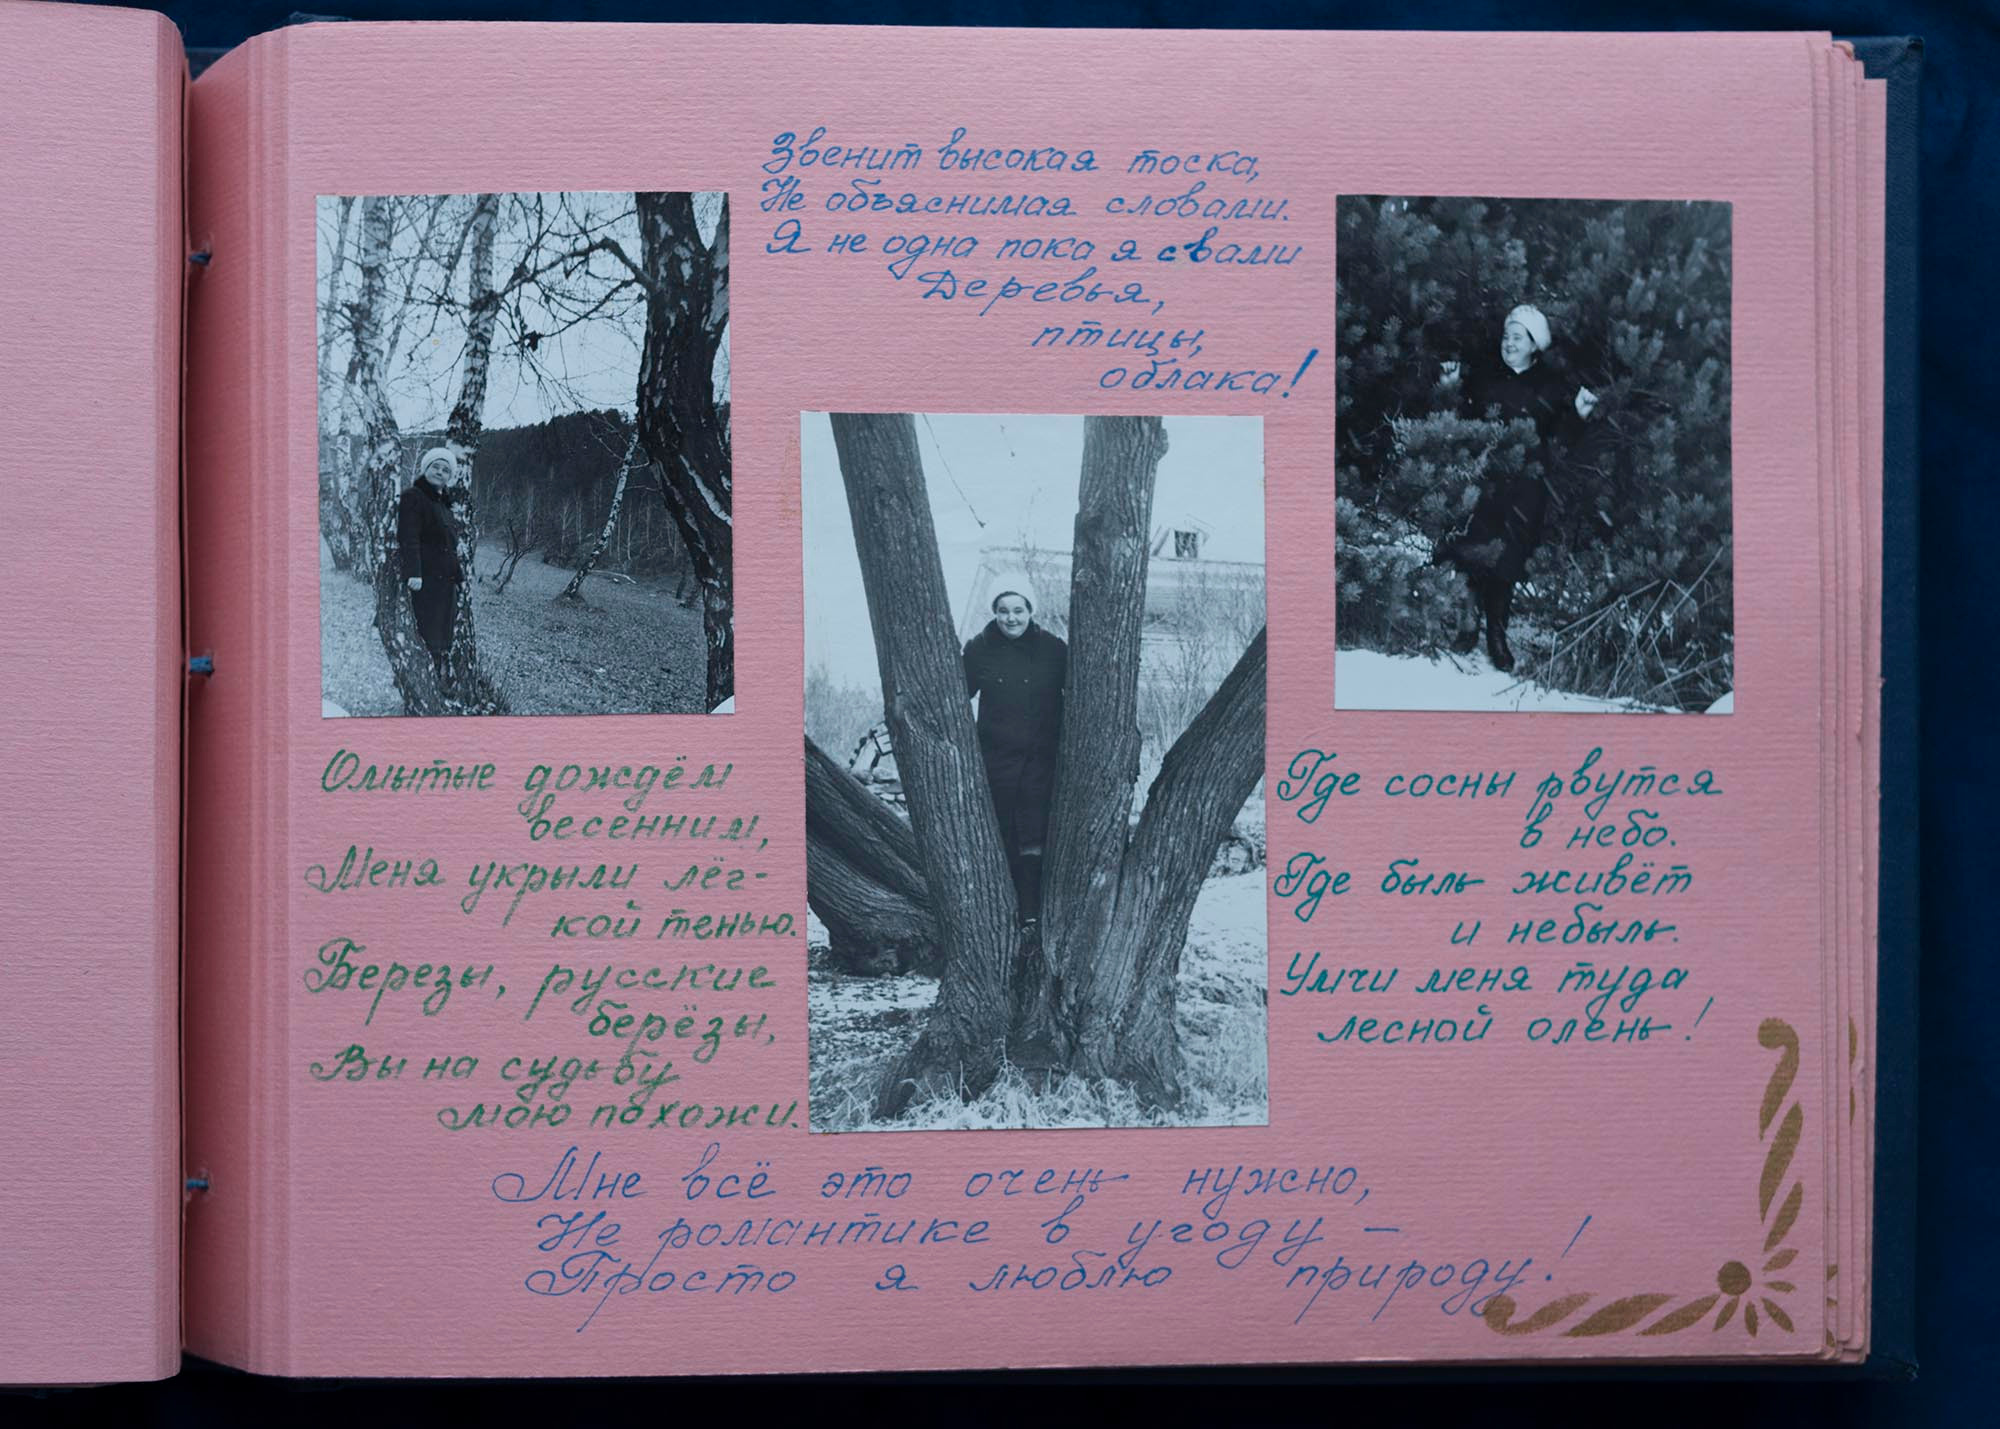 Звенит высокая тоска,
Не объяснимая словами.
Я не одна пока я с вами
Деревья,
птицы,
облака!
Омытые дождём
весенним,
Меня укрыли лёг-
кой тенью.
Березы, русские
берёзы,
Вы на судьбу
мою похожи.
Где сосны рвутся
в небо.
Где быль живёт
и небыль.
Умчи меня туда
лесной олень!
Мне всё это очень нужно,
Не романтике в угоду –
Просто я люблю природу!